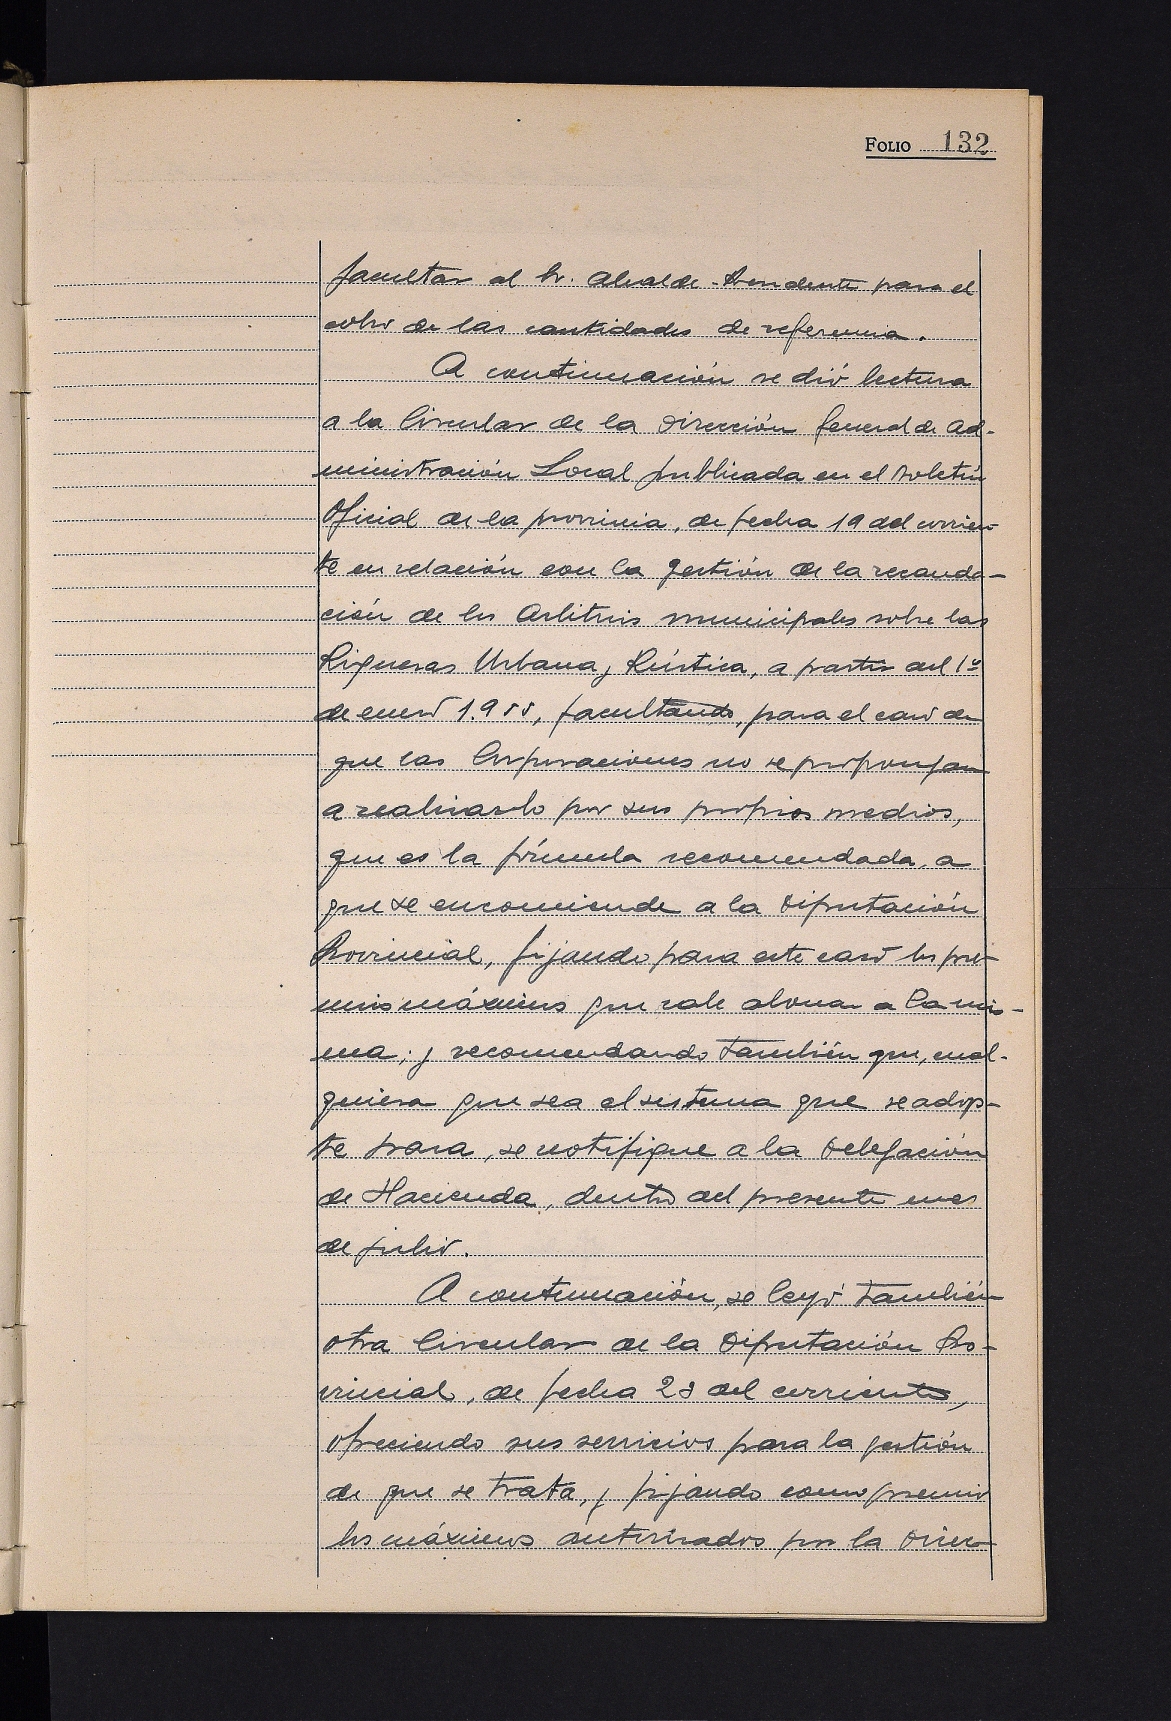 FOLIO 132
facultar al Sr. Alcalde-Presidente para el
cobro de las cantidades de referencia.
A continuación se dió lectura
a la Circular de la Dirección General de Ad-
ministración Local publicada en el Boletín
Oficial de la provincia, de fecha 19 del corrien-
te en relación con la gestión de la recauda-
ción de los Arbitrios municipales sobre las
Riquezas Urbana y Rústica, a partir del 1º
de enero 1.955, facultando, para el caso de
que las Corporaciones no se propongan
a realizarlo por sus propios medios,
que es la fórmula recomendada, a
que se encomiende a la Diputación
Provincial, fijando para este caso los pre-
mios máximos que cabe abonar a la mis-
ma; y recomendando también que, cual-
quiera que sea el sistema que se adop-
te para, se notifique a la Delegación
de Hacienda, dentro del presente mes
de julio.
A continuación, se leyó también
otra Circular de la Diputación Pro-
vincial, de fecha 28 del corriente,
ofreciendo sus servicios para la gestión
de que se trata, y fijando como premio
los máximos autorizados por la Direc-